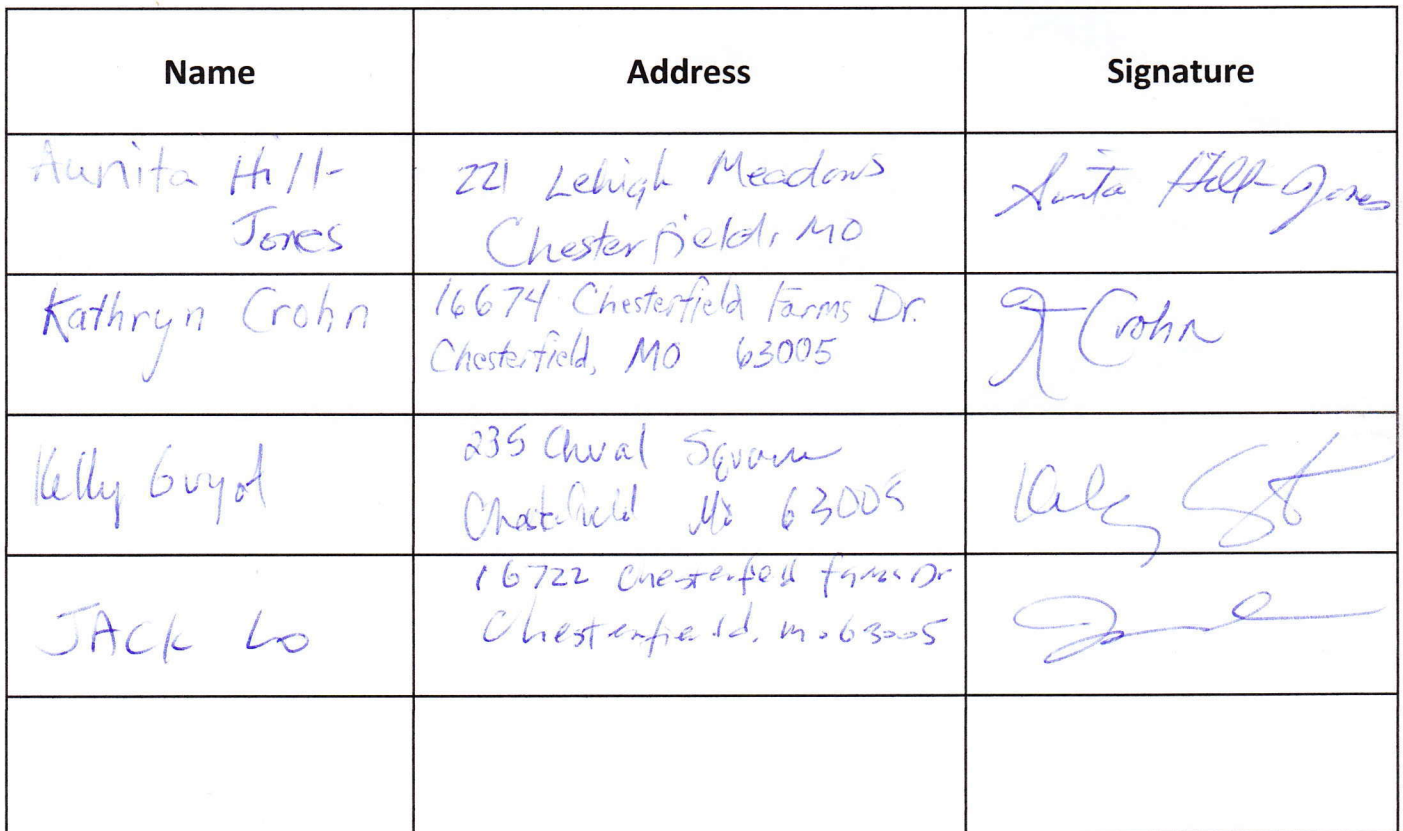 Name Address Signature
Aunita Hill-
Jones
221 Lehigh Meadows
Chesterfield, MO
Aunita Hill-Jones
Kathryn Crohn
16674 Chesterfield Farms Dr.
Chesterfield, MO 63005
K Crohn
Kelly Guyol
235 Cheval Square
Chesterfield Mo 63005
JACK Lo
16722 Chesterfield farms Dr
Chesterfield, mo 63005